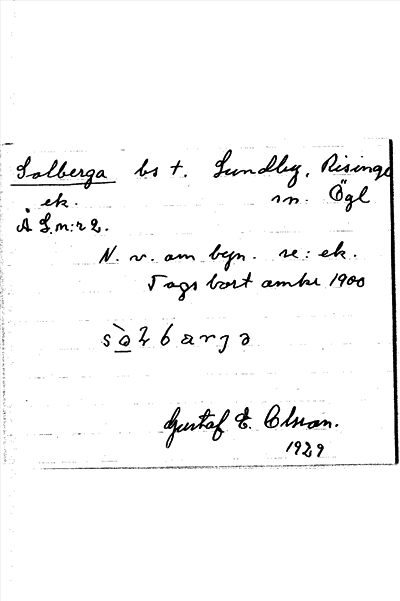 Solberga bs t. Lundby, Risinge
ek. sn. Ögl
Å L.m:r 2.
N. v. om byn. se: ek.
Togs bort omkr 1900
sò̲ɫbarja
Gustaf E. Olsson.
1929